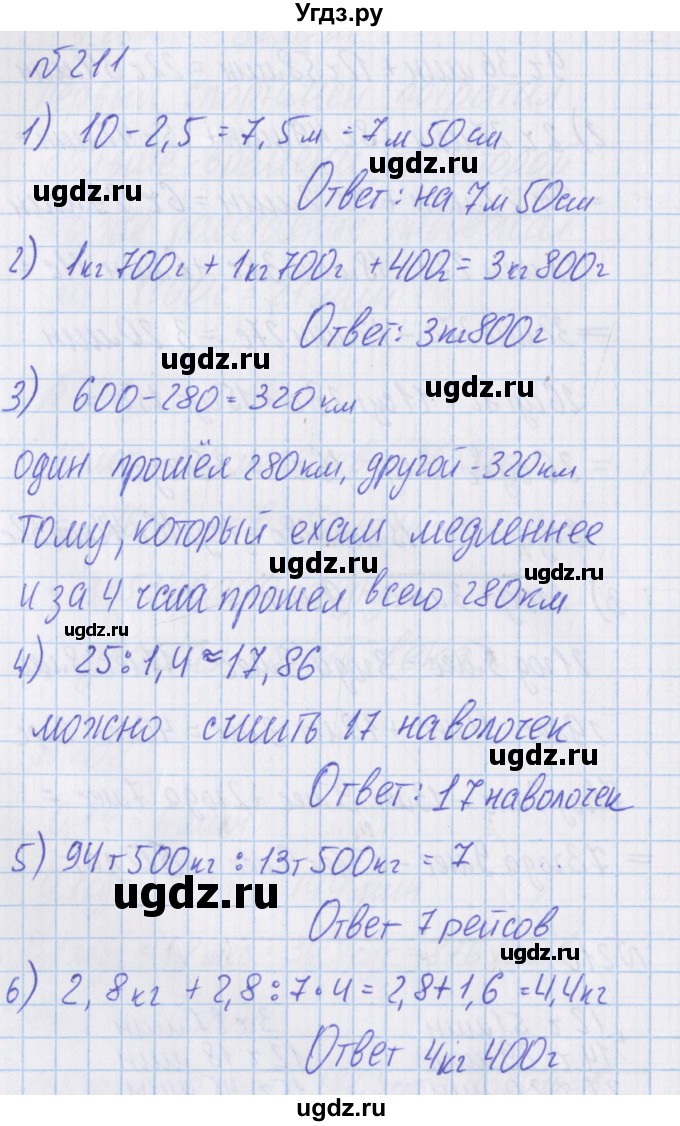 Угдз.ру
№211
1) 10 - 2,5 = 7,5м = 7м 50см
ugdz.ru ugdz.ru
Ответ: на 7м 50см
2) 1кг 700г + 1кг 700г + 400г = 3кг 800г
Ответ: 3кг 800г
ugdz.ru ugdz.ru
3) 600 - 280 = 320км
один прошёл 280км, другой - 320км
Тому, который ехал медленнее
ugdz.ru ugdz.ru
и за 4 часа прошел всего 280км
ugdz.ru
4) 25 : 1,4 ≈ 17,86
можно сшить 17 наволочек
ugdz.ru
Ответ: 17 наволочек
5) 94т 500кг : 13т 500кг = 7
ugdz.ru
Ответ 7 рейсов
ugdz.ru
6) 2,8кг + 2,8 : 7 · 4 = 2,8 + 1,6 = 4,4кг
Ответ 4кг 400г
ugdz.ru ugdz.ru